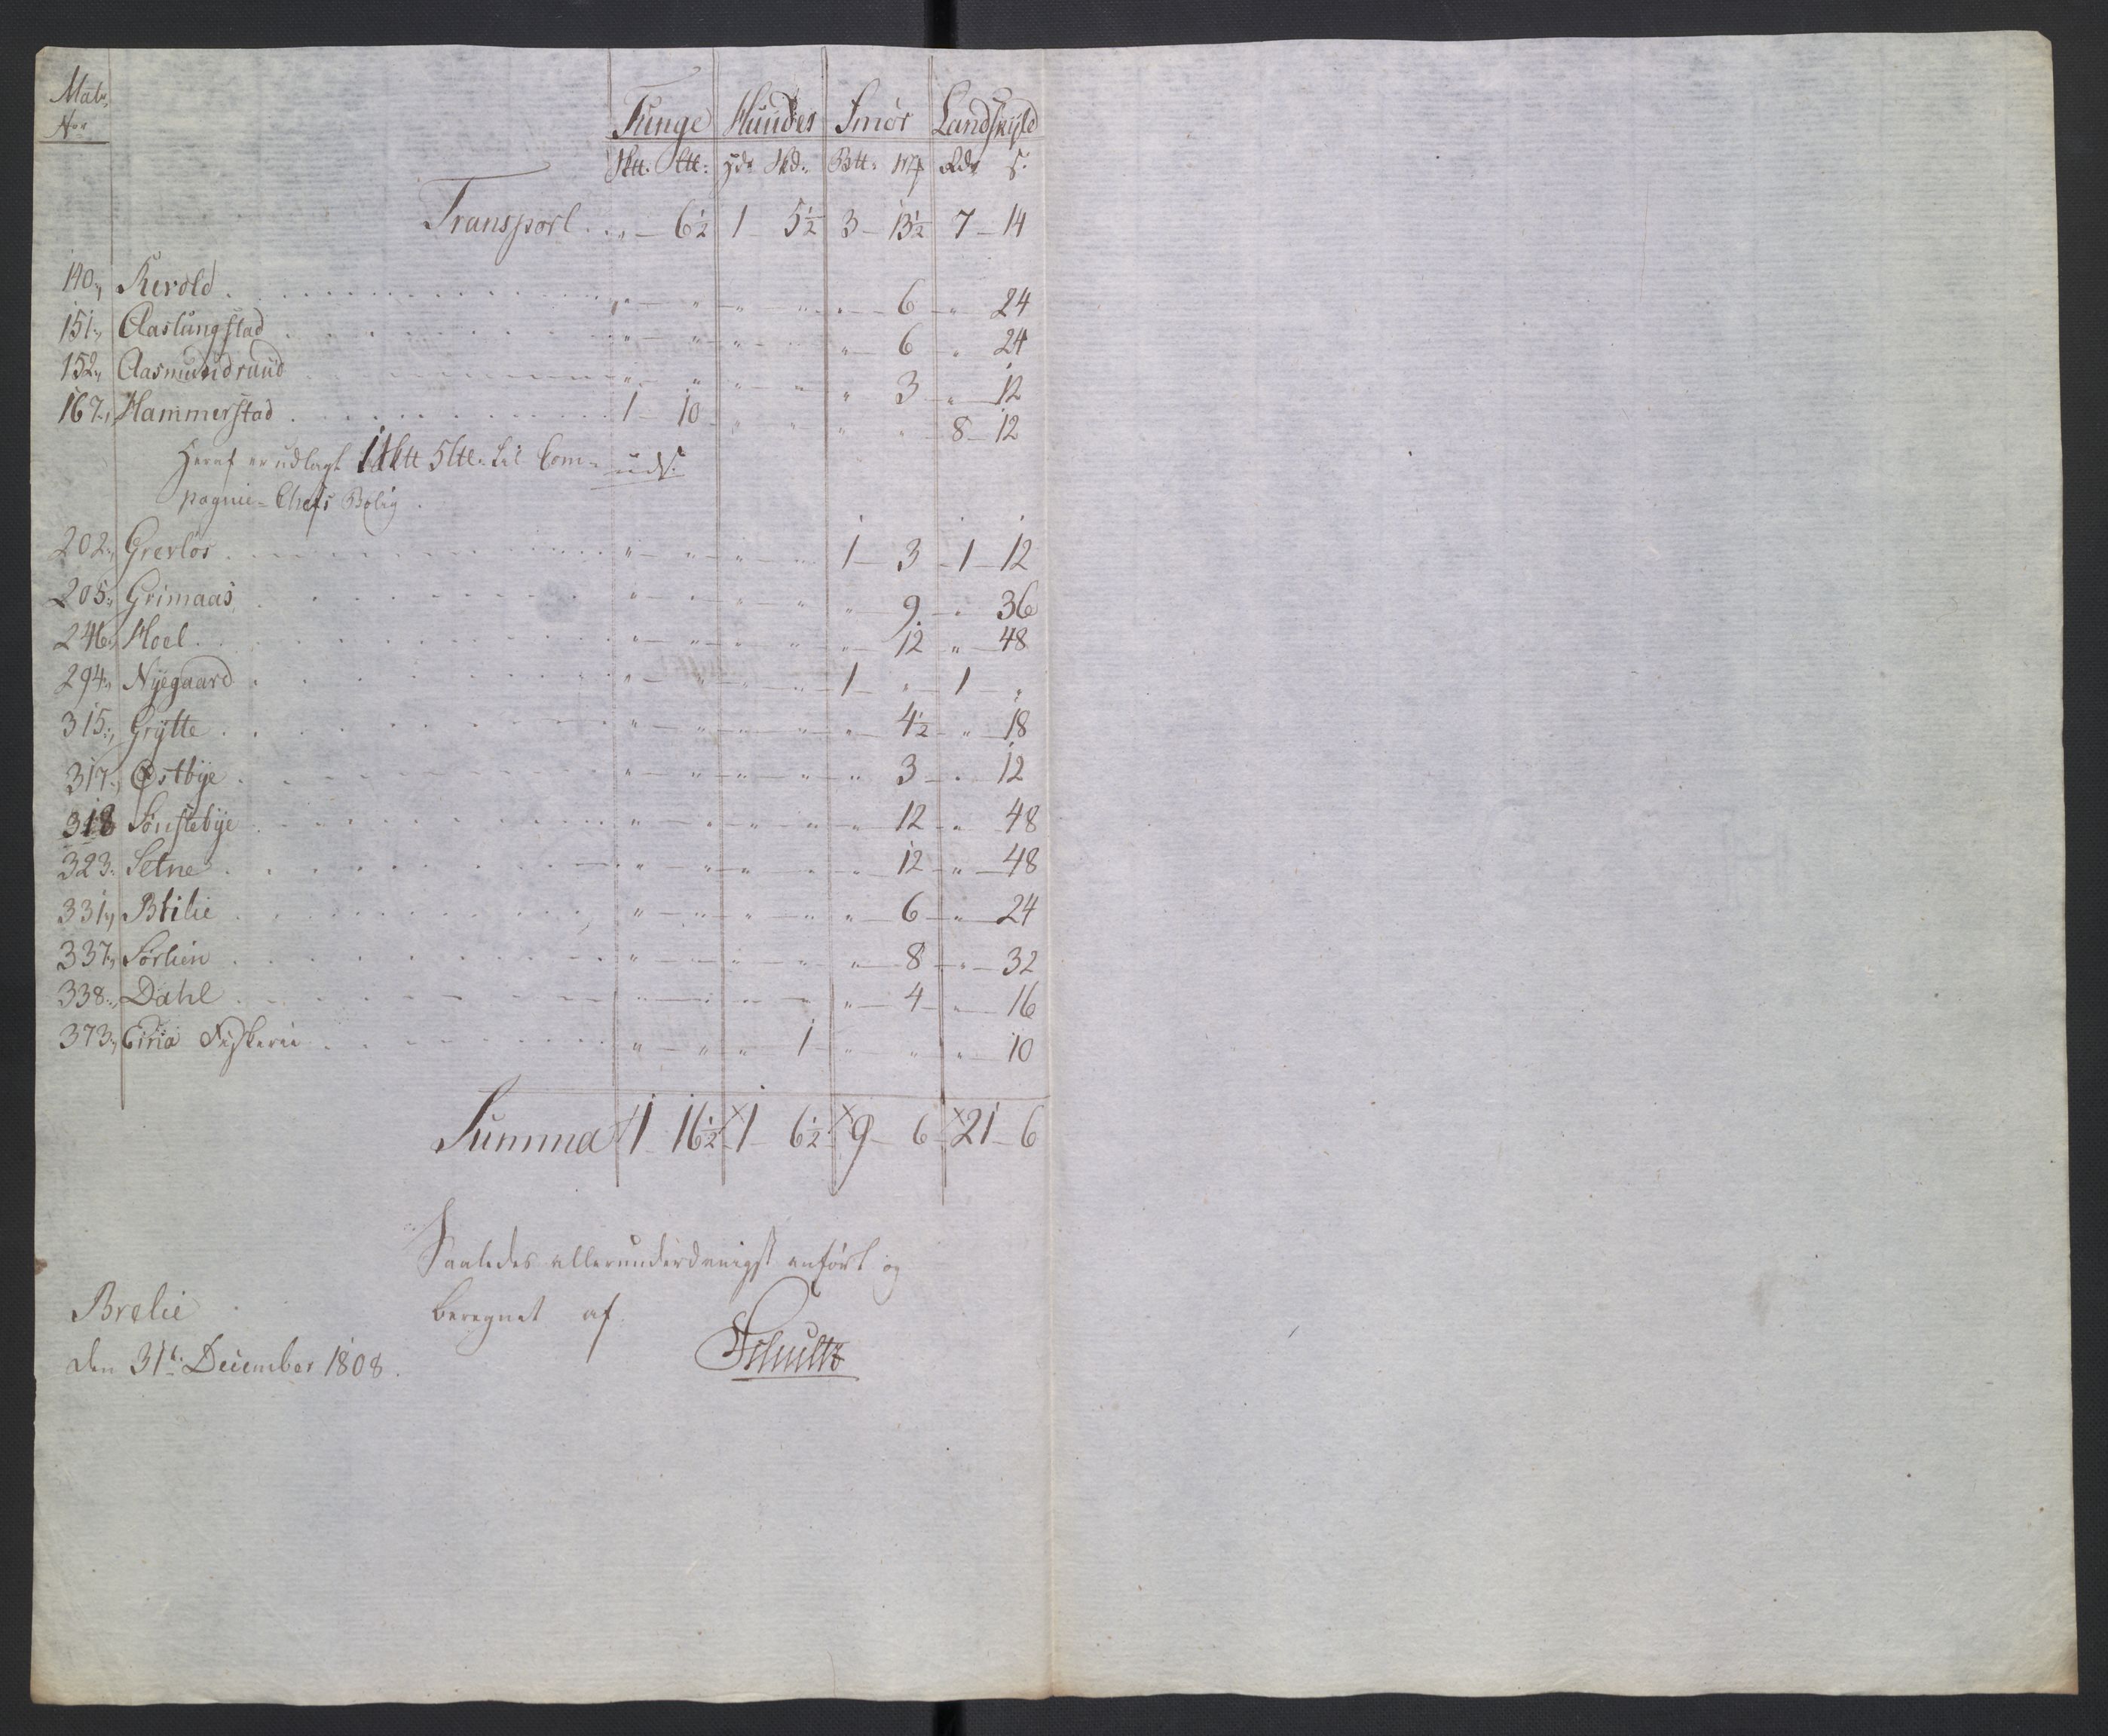 Matr. Tunge Huudes Smør Landskyld
Nor Sktt: Ltt: Hdr Skd: Btt: Mk Rdr s:
Transport „ 6½ 1 5½ 3 13½ 7 14
140„ Kerold „ „ „ „ „ 6 „ 24
151„ Aaslungstad „ „ „ „ „ 6 „ 24
152„ Aasmundruud „ „ „ „ „ 3 „ 12
167„ Hammerstad 1 10 „ „ „ „ 8 12
Heraf er udlagt 1 Sktt 5 Ltt: til Com-
pagnie-Chefs Bolig.
202„ Grevlos „ „ „ „ 1 3 1 12
205„ Grimaas „ „ „ „ „ 9 „ 36
246„ Hoel „ „ „ „ „ 12 „ 48
294„ Nyegaard „ „ „ „ 1 „ 1 „
315„ Grytte „ „ „ „ „ 4½ „ 18
317„ Østbye „ „ „ „ „ 3 „ 12
318 Sønstebye „ „ „ „ „ 12 „ 48
323„ Setne „ „ „ „ „ 12 „ 48
331„ Blilie „ „ „ „ „ 6 „ 24
337„ Sørlien „ „ „ „ „ 8 „ 32
338„ Dahl „ „ „ „ „ 4 „ 16
373„ Fiskerie „ „ „ 1 „ „ „ 10
Summa 1 16½ 1 6½ 9 6 21 6
Saaledes allerunderdanigst anført og
beregnet af
Brelie
den 31t: December 1808.
Schultz